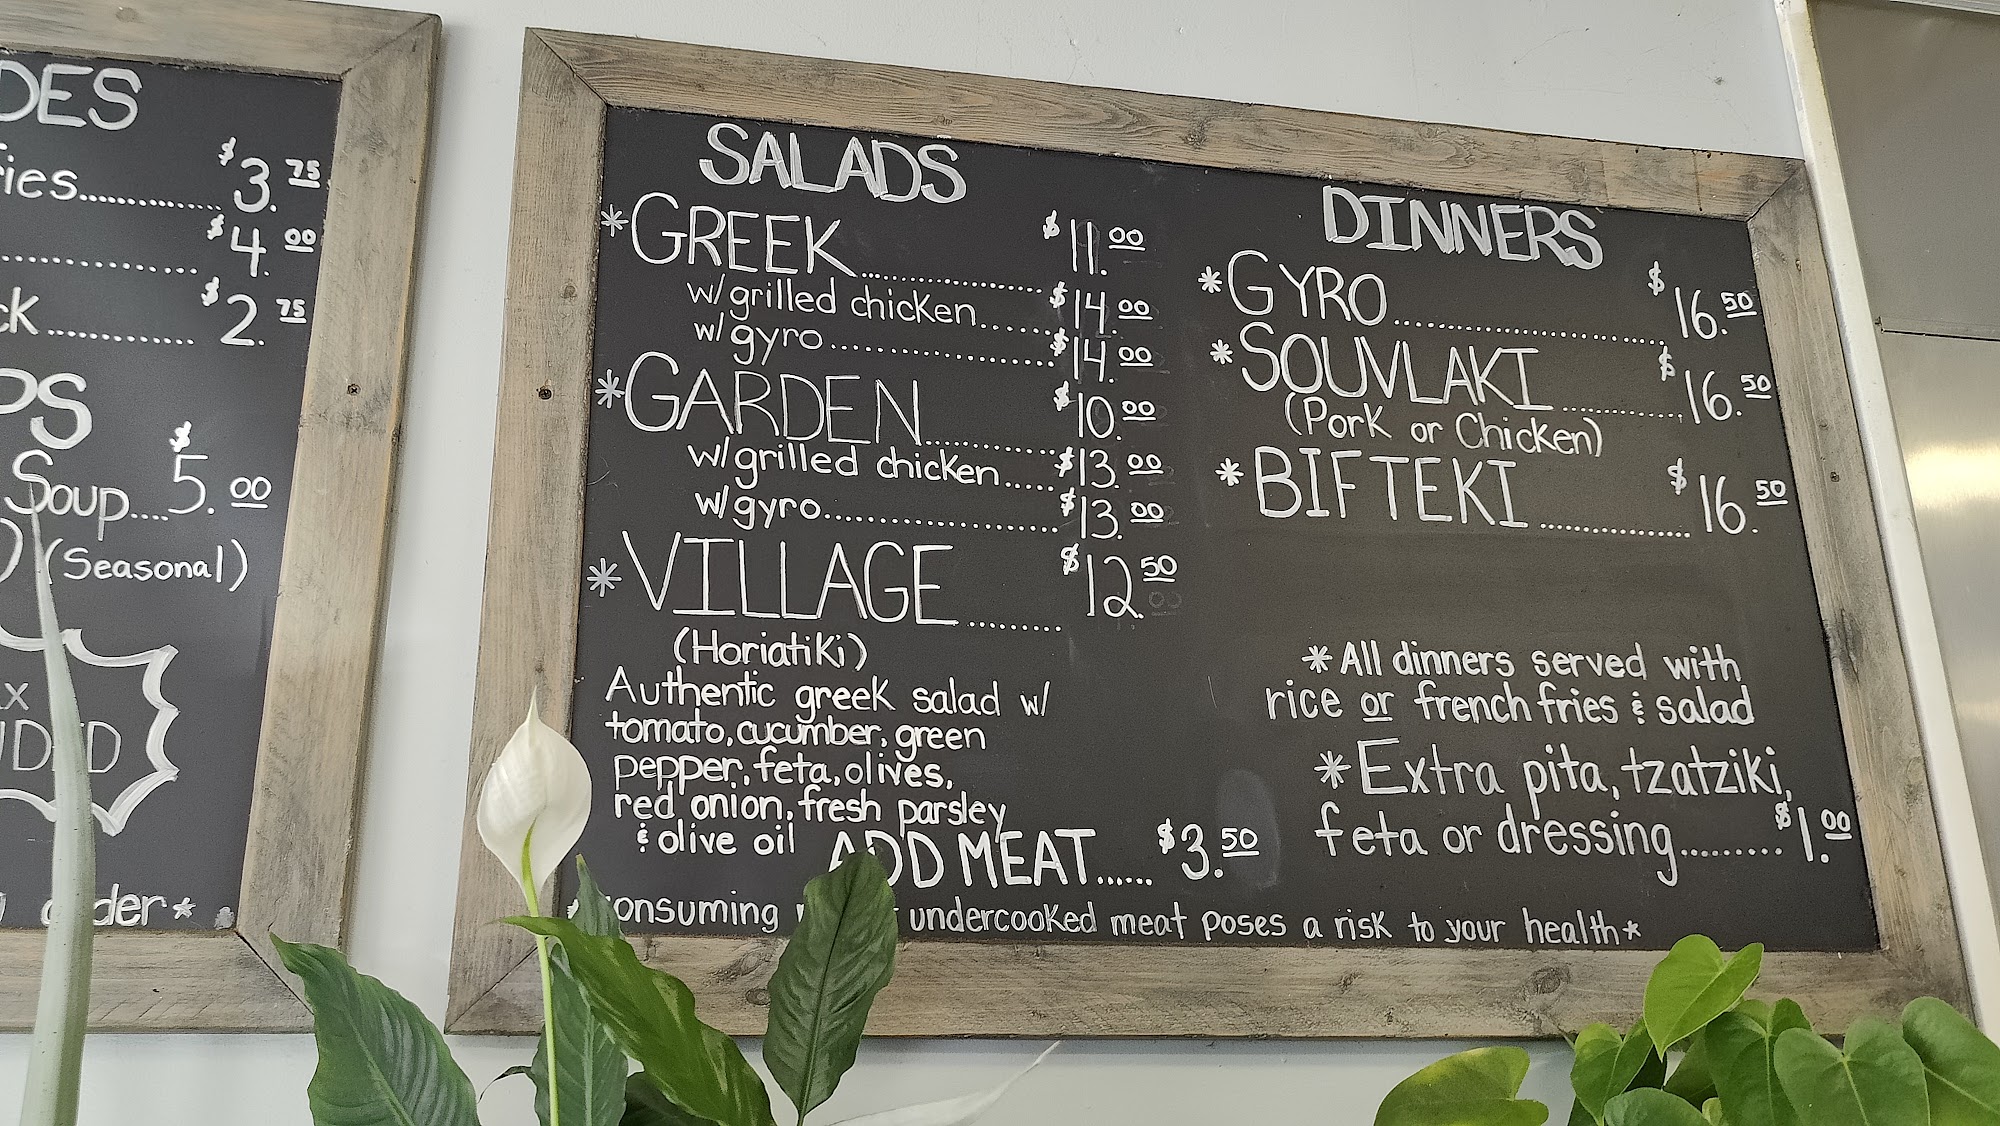 $3.75
$4.00
$2.75
Soup....$5.00
(Seasonal)
SALADS
*GREEK..................$11.00
w/grilled chicken......$14.00
w/gyro....................$14.00
*GARDEN.............$10.00
w/grilled chicken.....$13.00
w/gyro.....................$13.00
*VILLAGE.........$12.50
(Horiatiki)
Authentic greek salad w/
tomato, cucumber, green
pepper, feta, olives,
red onion, fresh parsley
& olive oil
ADD MEAT......$3.50
DINNERS
*GYRO........................$16.50
*SOUVLAKI.............$16.50
(Pork or Chicken)
*BIFTEKI................$16.50
*All dinners served with
rice or french fries & salad
*Extra pita, tzatziki,
feta or dressing.........$1.00
undercooked meat poses a risk to your health*